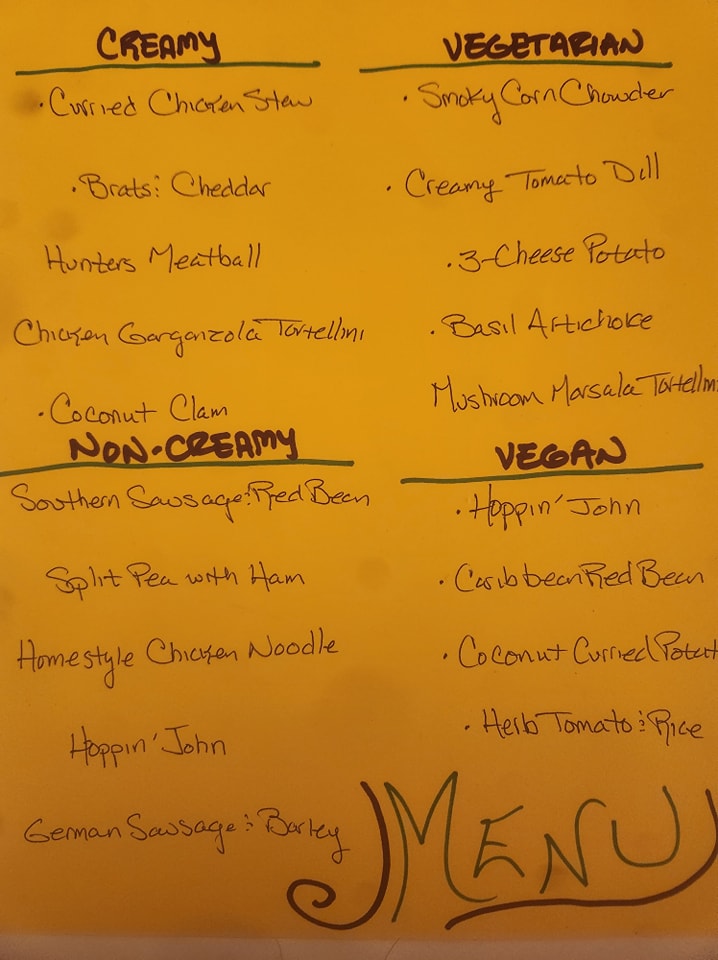 CREAMY
· Curried Chicken Stew
· Brats & Cheddar
Hunters Meatball
Chicken Gorganzola Tortellini
· Coconut Clam
NON-CREAMY
Southern Sausage & Red Bean
Split Pea with Ham
Homestyle Chicken Noodle
Hoppin' John
German Sausage & Barley
VEGETARIAN
· Smoky Corn Chowder
· Creamy Tomato Dill
· 3-Cheese Potato
· Basil Artichoke
Mushroom Marsala Tortellini
VEGAN
· Hoppin' John
· Caribbean Red Bean
· Coconut Curried Potat
· Herb Tomato & Rice
MENU